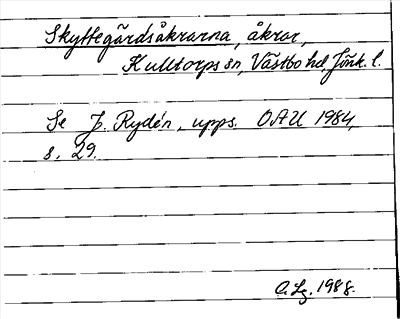 Skyttegårdsåkrarna, åkrar,
Kulltorps sn, Västbo hd, Jönk. l.
Se J. Rydén, upps. OAU 1984,
s. 29.
O. Lg. 1988.